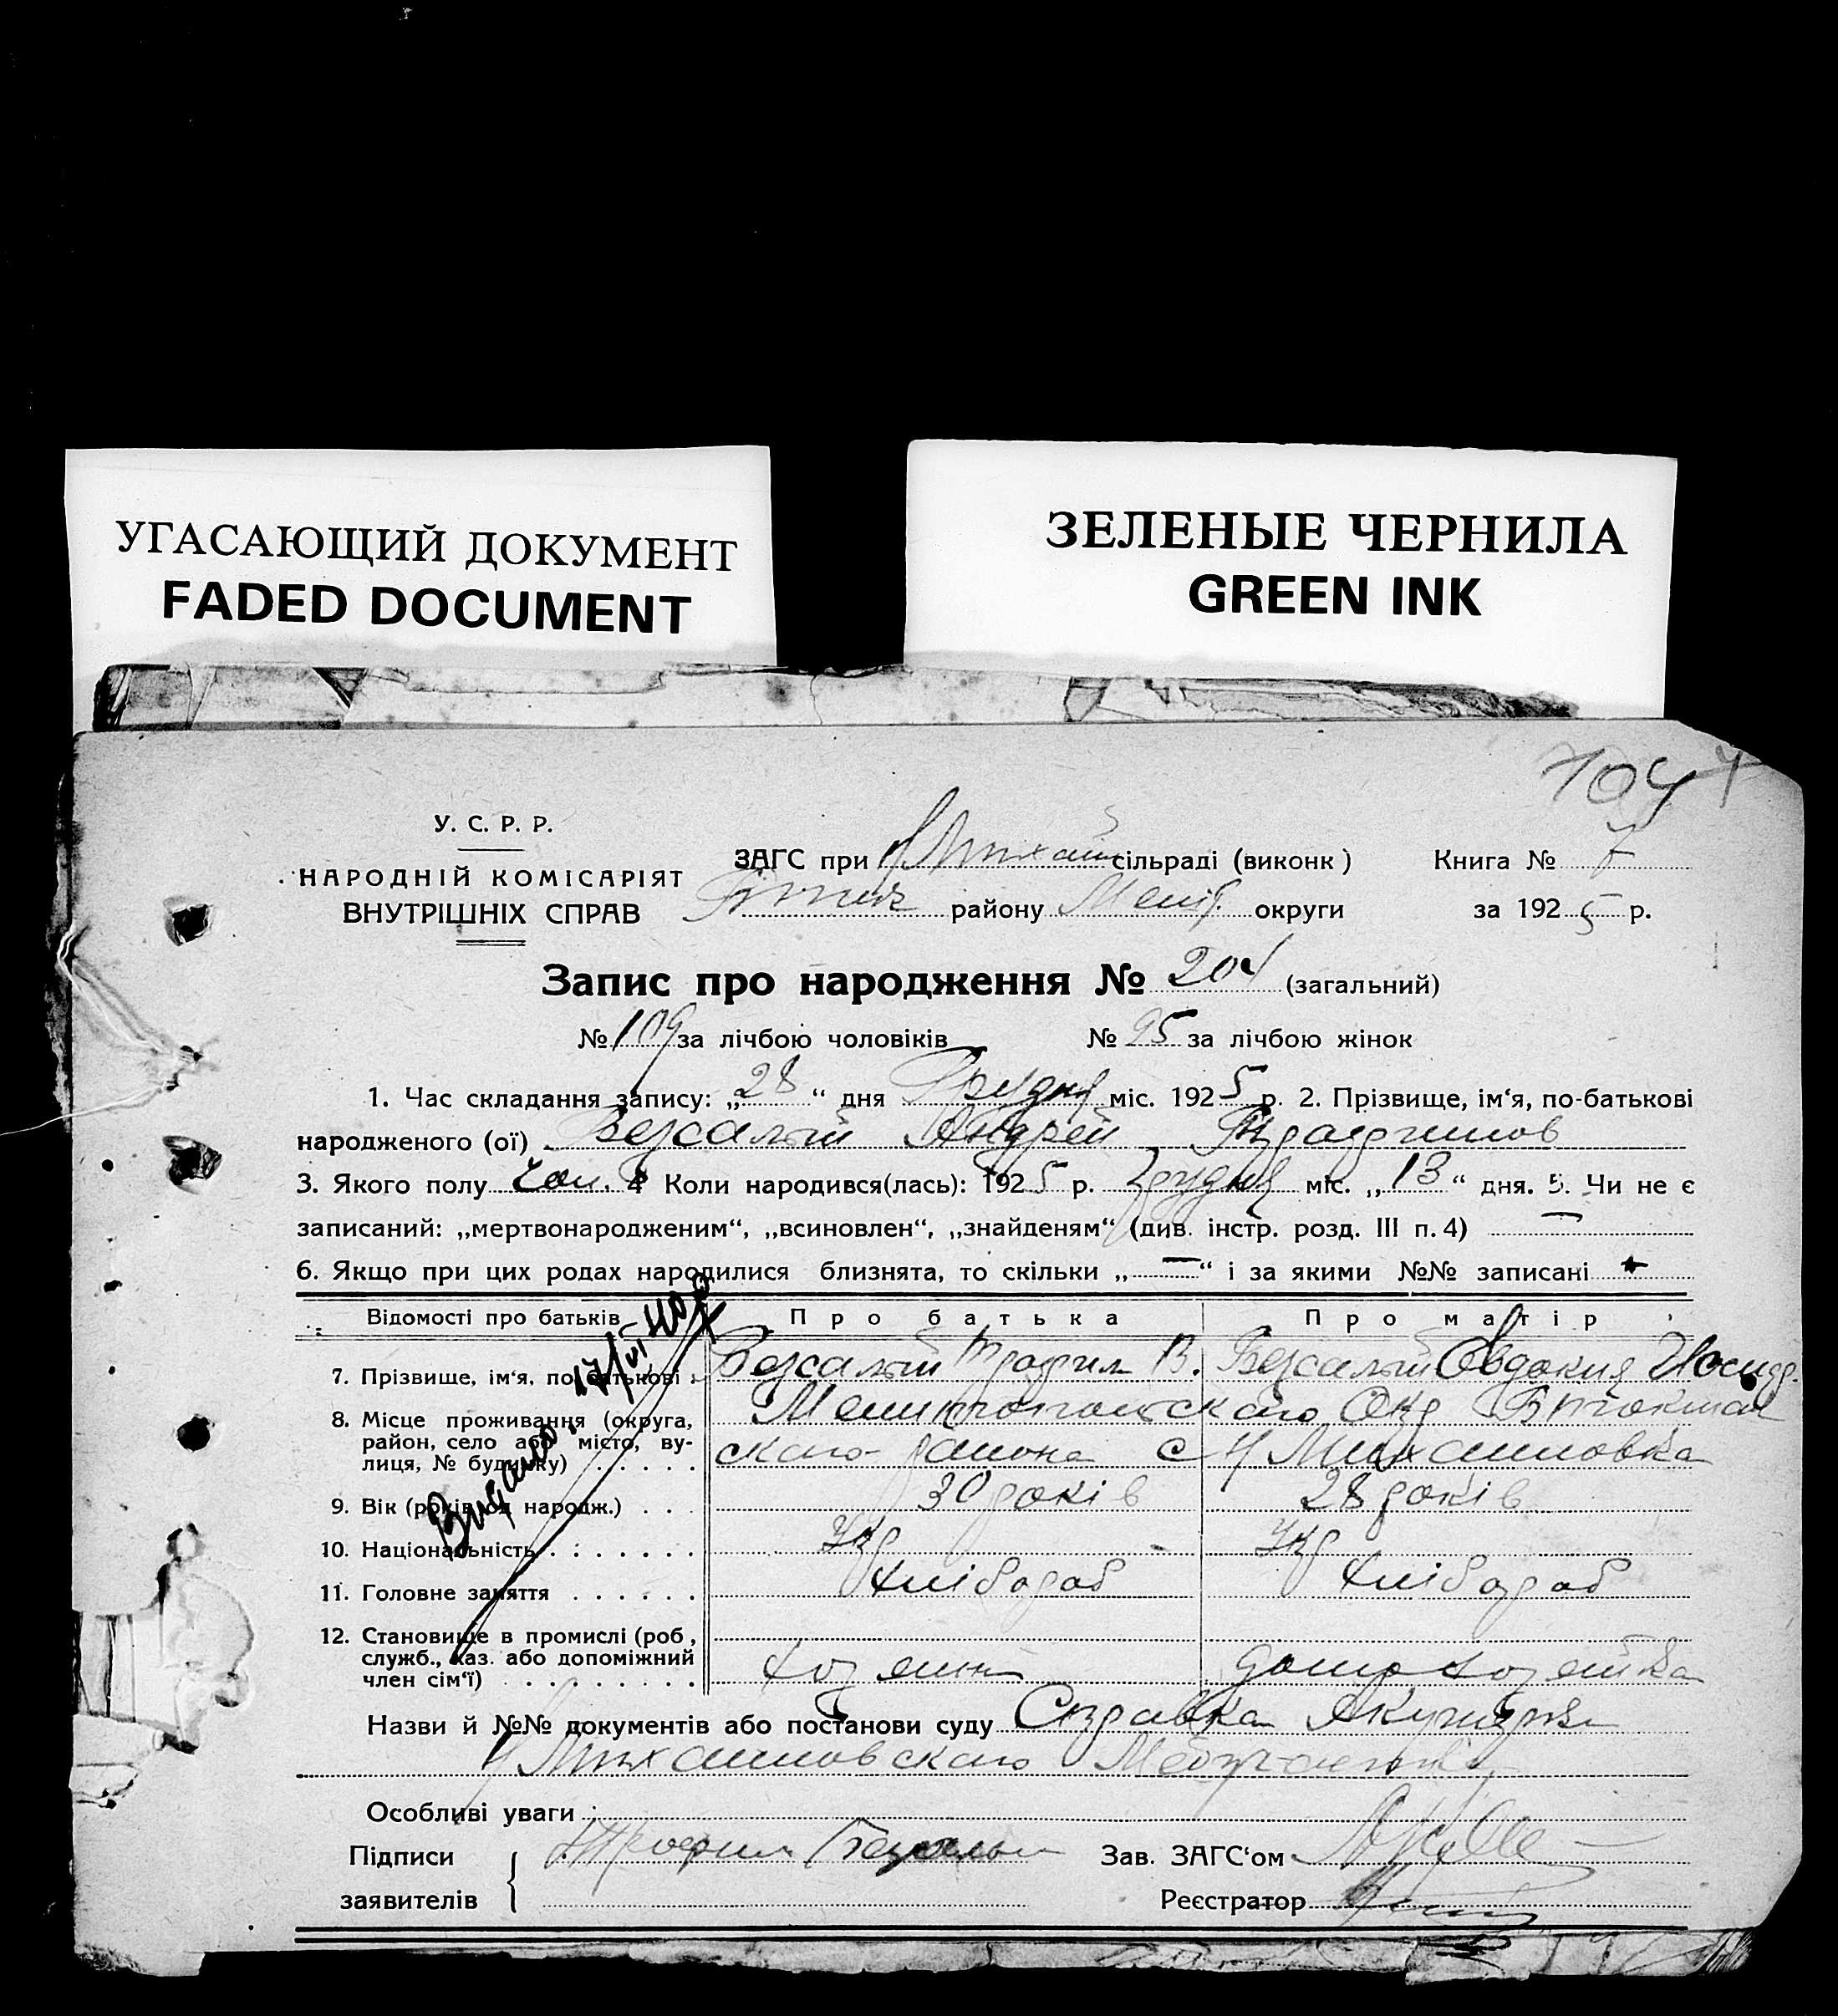 УГАСАЮЩИЙ ДОКУМЕНТ
FADED DOCUMENT
ЗЕЛЕНЫЕ ЧЕРНИЛА
GREEN INK
У. С. Р. Р.
НАРОДНІЙ КОМІСАРІЯТ
ВНУТРІШНІХ СПРАВ
ЗАГС при сільраді (виконк) Книга № 7
району Меліт. округи за 1925 р.
Запис про народження № 204 (загальний)
№ 109 за лічбою чоловіків № 95 за лічбою жінок
1. Час складання запису: „28“ дня Грудня міс. 1925 р. 2. Прізвище, ім'я, по-батькові
народженого (ої) Андрей
3. Якого полу чол. 4 Коли народився(лась): 1925 р. Грудня міс. „13“ дня. 5. Чи не є
записаний: „мертвонародженим“, „всиновлен“, „знайденям“ (див. інстр. розд. III п. 4) —
6. Якщо при цих родах народилися близнята, то скільки „—“ і за якими №№ записані
Відомості про батьків Про батька Про матір
7. Прізвище, ім'я, по батькові Трофим В. Евдокия
8. Місце проживання (округа, район, село або місто, вулиця, № будинку) Мелитопольскаго Окр
скаго района с Михайловка
9. Вік (років од народж.) 30 років 28 років
10. Національність Укр Укр
11. Головне заняття Хлібороб Хлібороб
12. Становище в промислі (роб., служб., хаз. або допоміжний член сім'ї) хозяин домохозяйка
Видано 17/VI 40 р
Назви й №№ документів або постанови суду Справка Акушерки
Михайловскаго
Особливі уваги
Підписи заявителів Трофим
Зав. ЗАГС'ом
Реєстратор